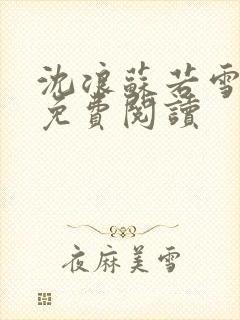 沈浪蘇若雪
免費閱讀
夜麻美雪